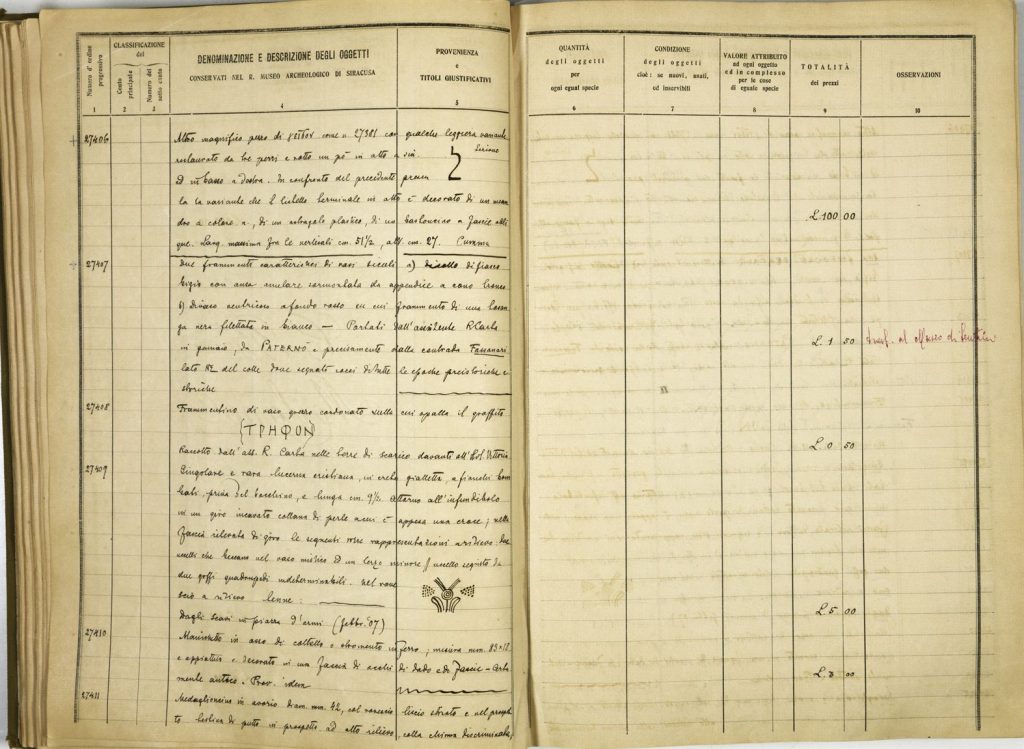 Numero d'ordine progressivo
CLASSIFICAZIONE
del
Conto principale
Numero del sotto conto
DENOMINAZIONE E DESCRIZIONE DEGLI OGGETTI
CONSERVATI NEL R. MUSEO ARCHEOLOGICO DI SIRACUSA
PROVENIENZA
e
TITOLI GIUSTIFICATIVI
QUANTITÀ
degli oggetti
per
ogni egual specie
CONDIZIONE
degli oggetti
cioè: se nuovi, usati,
od inservibili
VALORE ATTRIBUITO
ad ogni oggetto
ed in complesso
per le cose
di eguale specie
TOTALITÀ
dei prezzi
OSSERVAZIONI
1 2 3 4 5 6 7 8 9 10
27406 Altro magnifico pezzo di come n. 27381 con qualche leggiera variante
restaurato da tre pezzi e rotto un pò in alto a sin.
Ed in basso a destra. In confronto del precedente
la variante che il listello terminale in alto è decorato di un mean
dro a colore n., di un astragalo plastico, di un a fascie obli
que. Larg. massima fra le verticali cm. 51½, alt. cm. 27.
L. 100 00
27407 Due frammenti caratteristici di vasi siculi a) di
grigio con ansa anulare sormontata da appendice a cono tronco
b) Diverso a fondo rosso su cui frammento di una
ga nera filettata in bianco — Portati dall'assistente R. Carta
in gennaio, da PATERNÒ e precisamente dalla contrada
lato del colle dove segnato cocci di tutte le epoche preistoriche e
storiche
L. 1 50
27408 Frammentino di vaso grezzo cordonato sulla cui spalla il graffito
ΤΡΗΦΟΝ
Raccolto dall'ass. R. Carta nelle terre di scarico davanti all'Hot. Vittoria
L. 0 50
27409 Singolare e rara lucerna cristiana, in creta gialletta, a fianchi
priva del beccuccio, e lunga cm. 9½ Attorno all'infundibolo
in un giro incavato collana di perle a cui è appesa una croce; nella
fascia rilevata di giro le seguenti rappresentazioni a rilievo: due
uccelli che beccano nel vaso mistico ed un terzo minore // uccello seguito da
due goffi quadrupedi indeterminabili. Nel rove
scio a rilievo
Dagli scavi in piazza d'armi (febbr. '07)
L. 5 00
27410 Manichetto in osso di coltello o strumento in ferro; misura mm. 83×18
e decorato in una fascia di occhi di dado e di fascie
mente Prov. idem
L. 3 00
27411 Medaglioncino in avorio diam. mm. 42, col rovescio liscio e nel prospet
to testina di putto in prospetto ad alto rilievo, colla chioma discriminata,